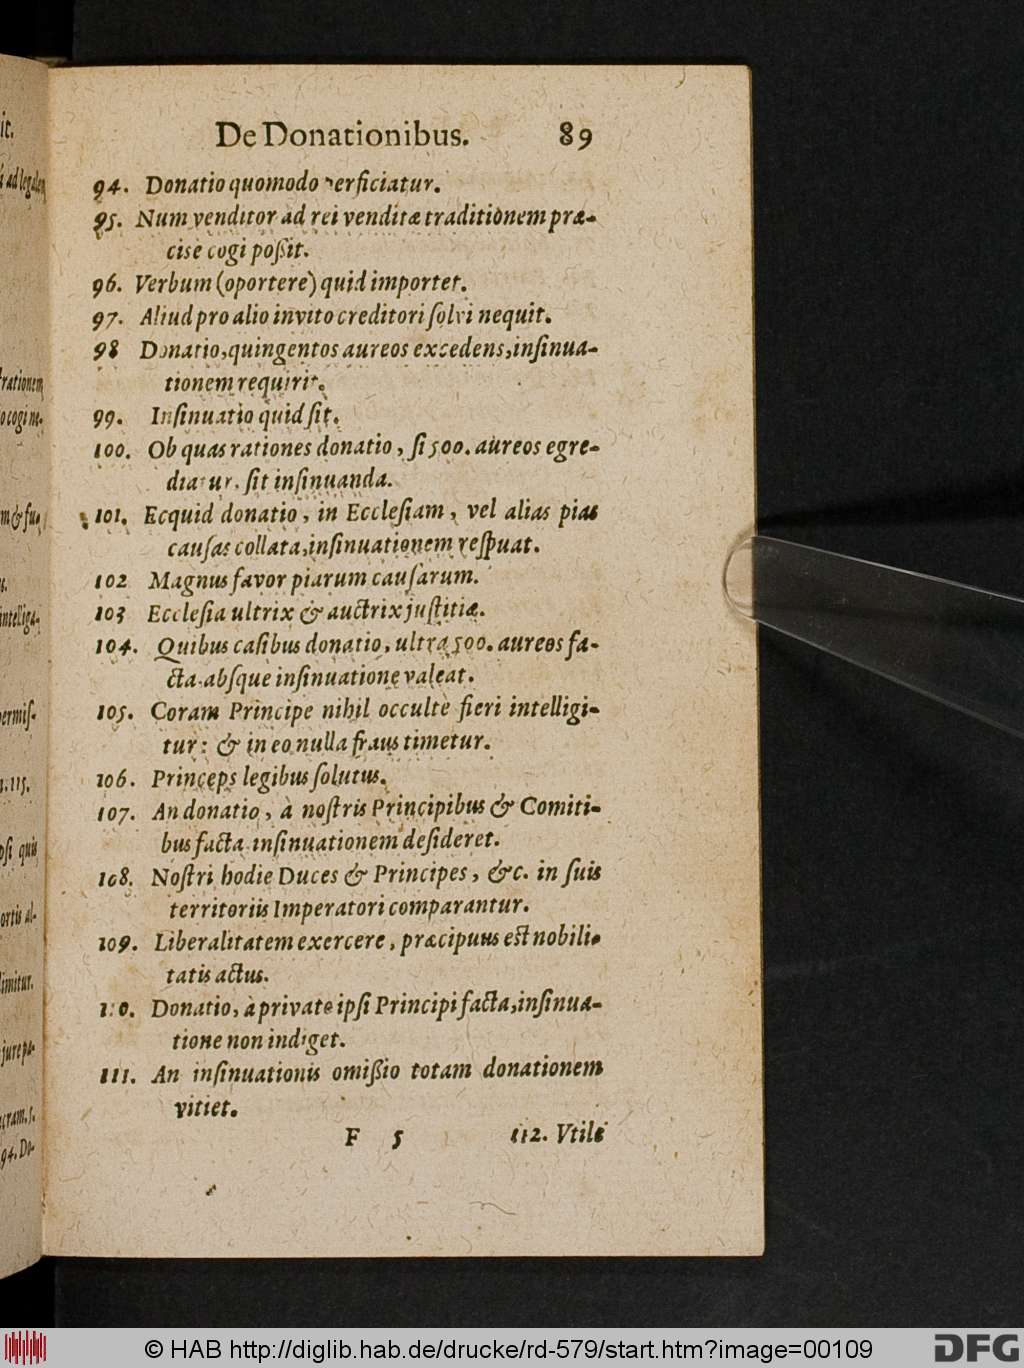 De Donationibus. 89
94. Donatio quomodo perficiatur.
95. Num venditor ad rei venditæ traditionem præ-
cisè cogi poßit.
96. Verbum (oportere) quid importet.
97. Aliud pro alio invito creditori ſolvi nequit.
98 Donatio, quingentos aureos excedens, inſinua-
tionem requirit.
99. Inſinuatio quid ſit.
100. Ob quas rationes donatio, ſi 500. aureos egre-
diatur, ſit inſinuanda.
101. Ecquid donatio, in Eccleſiam, vel alias pias
cauſas collata, inſinuationem reſpuat.
102 Magnus favor piarum cauſarum.
103 Eccleſia ultrix & auctrix juſtitiæ.
104. Quibus caſibus donatio, ultra 500. aureos fa-
cta. abſque inſinuatione valeat.
105. Coram Principe nihil occultè fieri intelligi-
tur: & in eo nulla fraus timetur.
106. Princeps legibus ſolutus.
107. An donatio, à noſtris Principibus & Comiti-
bus facta inſinuationem deſideret.
108. Noſtri hodie Duces & Principes, &c. in ſuis
territoriis Imperatori comparantur.
109. Liberalitatem exercere, præcipuus est nobili-
tatis actus.
110. Donatio, à privato ipſi Principi facta, inſinua-
tione non indiget.
111. An inſinuationis omißio totam donationem
vitiet.
F 5 112. Vtile
ad legalem
rationem
o cogi ne-
m & fu-
intelliga-
permiſ-
n. 115.
pſi quis
ortis al-
limitur.
jure pa-
cram. 5.
94. Do-
© HAB http://diglib.hab.de/drucke/rd-579/start.htm?image=00109
DFG